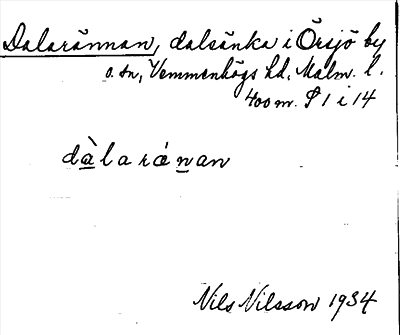 Dalarännan, dalsänka i Örsjö by
o. sn, Vemmenhögs hd, Malm. l.
400 m. S 1 i 14
dàlaránan
Nils Nilsson 1934